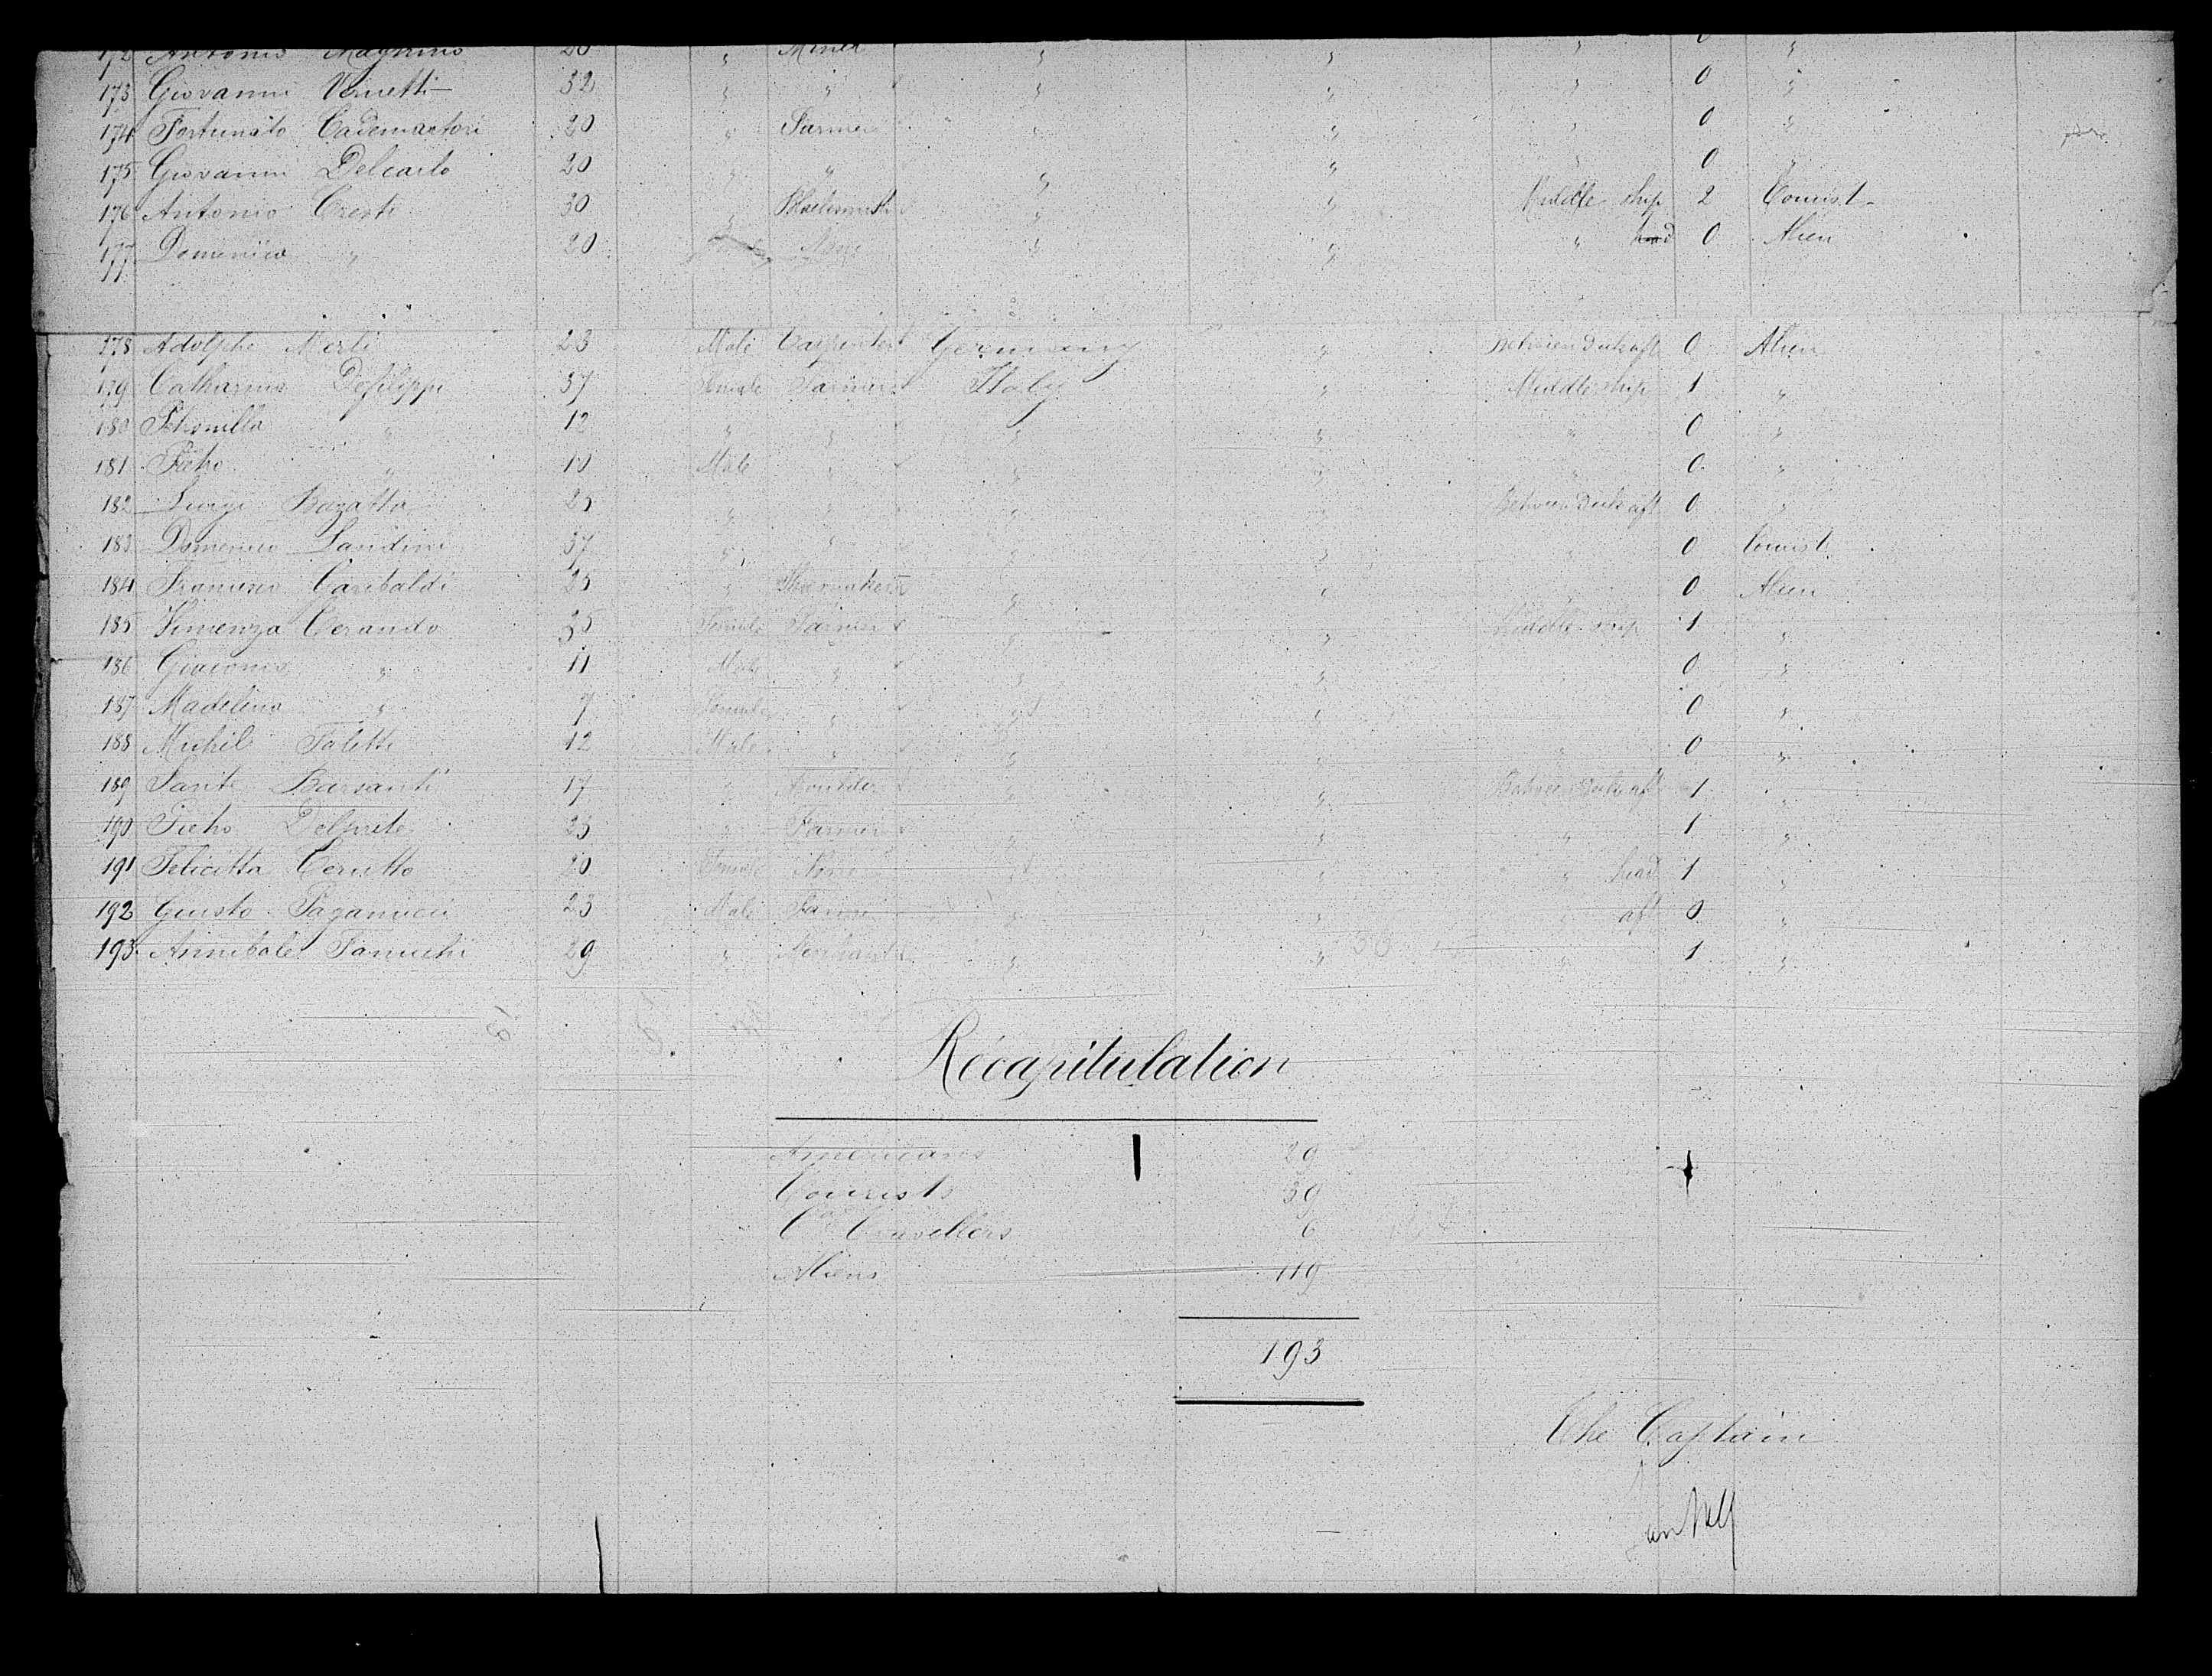 172 Antonio Magnino 20 " Miner " " " 0 "
173 Giovanni Vernetti 32 " " " " " 0 "
174 Fortunato Cademartori 20 " Farmer " " " 0 "
175 Giovanni Delcarlo 20 " " " " " 0 "
176 Antonio Cresti 30 " Blacksmith " " Middle ship 2 Tourist
177 Domenica " 20 None " " " head 0 Alien
11
178 Adolphe Merli 23 Male Carpenter Germany " Between deck aft 0 Alien
179 Catharina Defilippi 37 Female Farmer Italy " Middle ship 1 "
180 Petronilla " 12 " " " " " 0 "
181 Pietro " 10 Male " " " " 0 "
182 Luigi Bazatta 25 " " " " Between deck aft 0 "
183 Domenico Landini 37 " " " " " 0 Tourist
184 Francesco Garibaldi 25 " Shoemaker " " " 0 Alien
185 Cerando 35 Female Farmer " " Middle ship 1 "
186 Giacomo " 11 Male " " " 0 "
187 Madelina " 7 Female " " " 0 "
188 Michile Faletti 12 Male " " " " 0 "
189 Sante Barsanti 17 " Moulder " " Between deck aft 1 "
190 Pietro Delprete 23 " Farmer " " " 1 "
191 Felicitta Cerutto 20 Female None " " " head 1 "
192 Giusto Paganucci 23 Male Farmer " " " aft 0 "
193 Annibale Fanucchi 29 " Merchant " " " 1 "
Recapitulation
Americans 29
Tourists 39
Co. Travellers 6
Aliens 119
193
The Captain